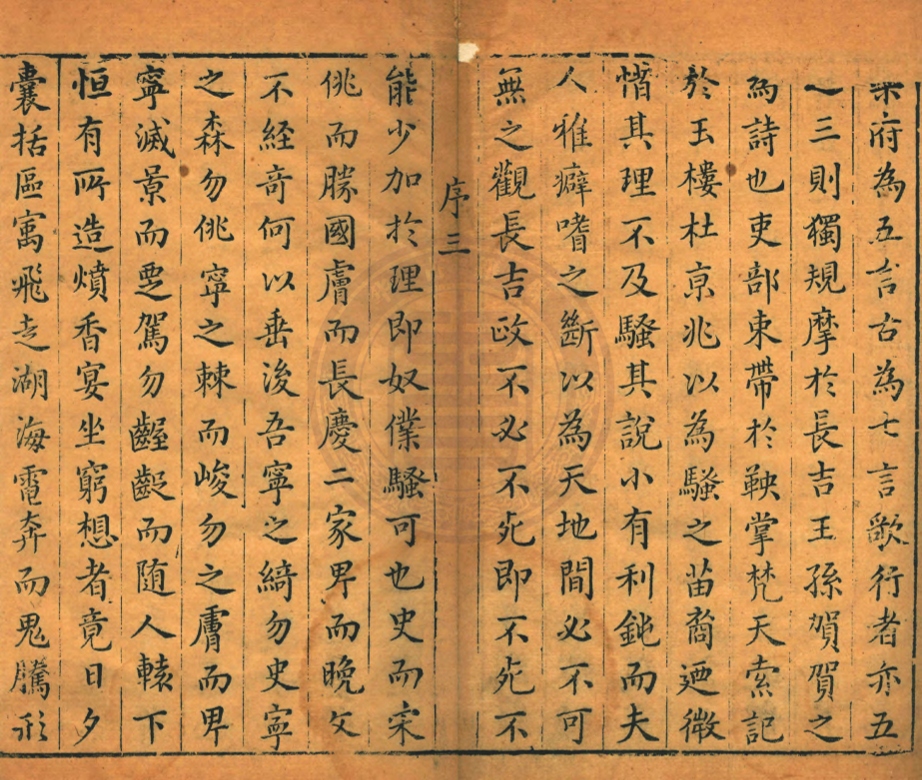 樂府為五言古為七言歌行者亦五
三則獨規摩於長吉王孫賀賀之
為詩也吏部束帶於鞅掌梵天索記
於玉樓杜京兆以為騷之苗裔迺徵
惜其理不及騷其說小有利鈍而夫
人雅癖嗜之斷以為天地間必不可
無之觀長吉政不必不死即不死不
序三
能少加於理即奴僕騷可也史而宋
佻而勝國膚而長慶二家卑而晚文
不經奇何以垂後吾寧之綺勿史寧
之森勿佻寧之棘而峻勿之膚而卑
寧滅景而覂駕勿齷齪而随人轅下
恒有所造燌香宴坐窮想者竟日夕
囊括區寓飛走湖海電奔而鬼騰形